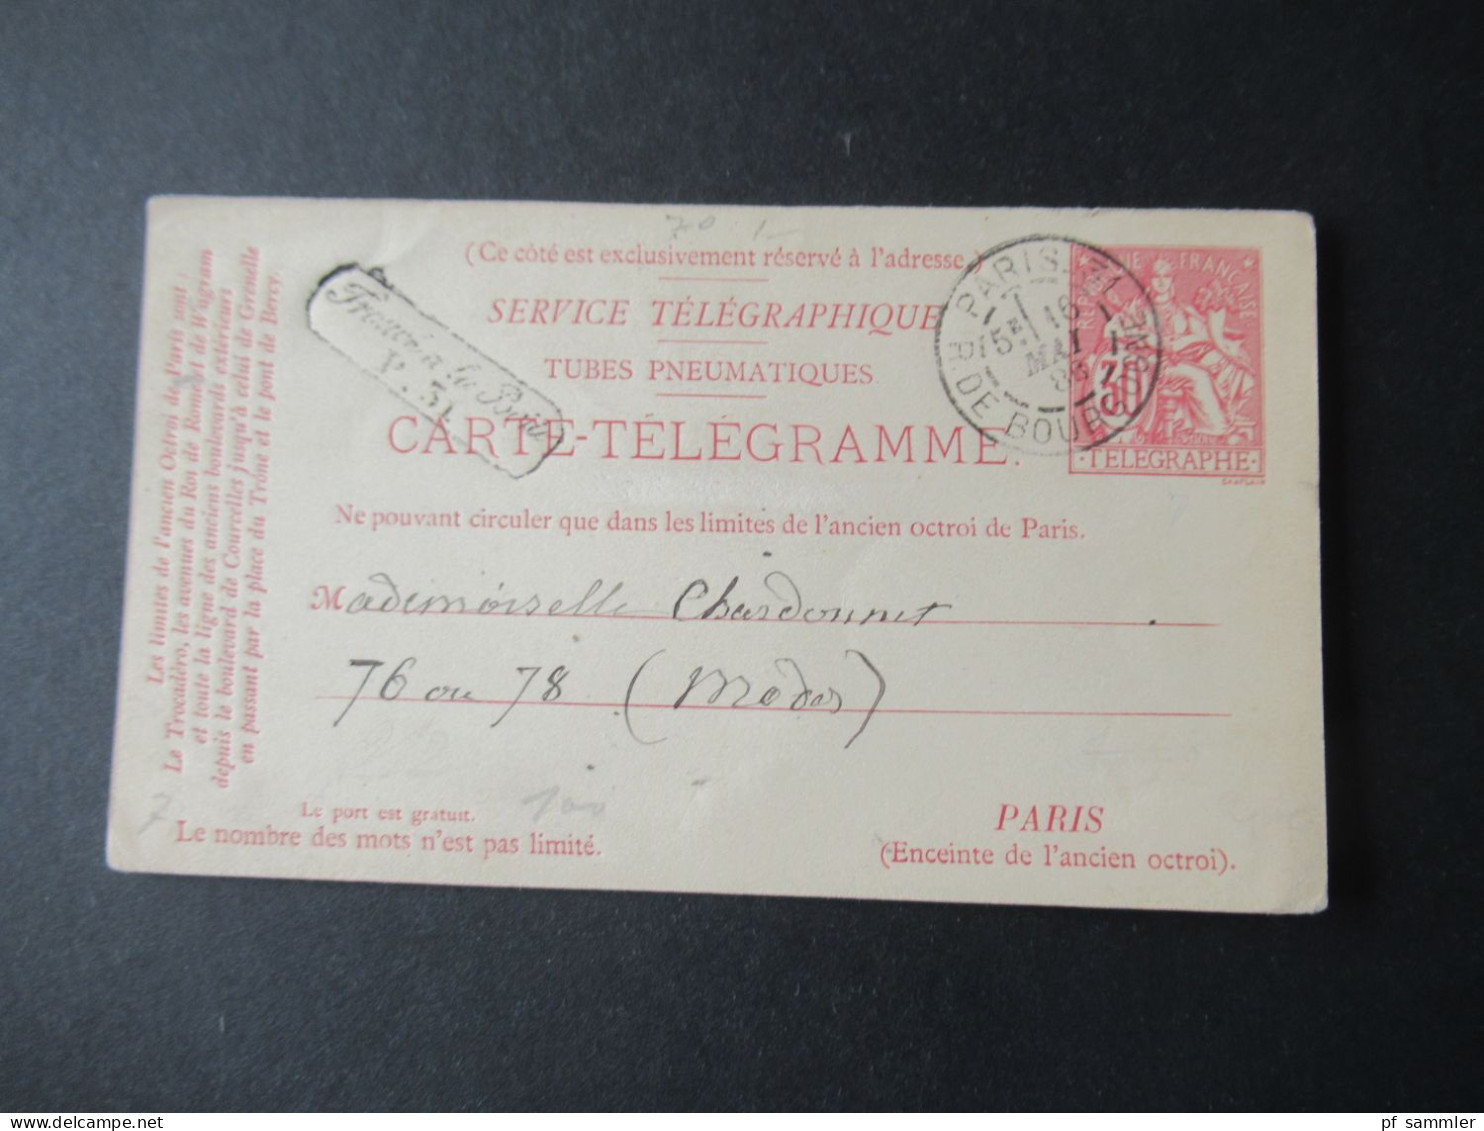 (Ce côté est exclusivement réservé à l'adresse.)
SERVICE TÉLÉGRAPHIQUE
TUBES PNEUMATIQUES
CARTE-TÉLÉGRAMME.
Ne pouvant circuler que dans les limites de l'ancien octroi de Paris.
Trouvé à la Boîte
PARIS
16
MAI
R. DE BOURGOGNE
FRANÇAISE
30
TELEGRAPHE
CHAPLAIN
Les limites de l'ancien Octroi de Paris sont:
Le Trocadéro, les avenues du Roi de Rome et de Wagram
et toute la ligne des anciens boulevards extérieurs
depuis le boulevard de Courcelles jusqu'à celui de Grenelle
en passant par la place du Trône et le pont de Bercy.
Mademoiselle Chardonnet
76 ou 78 (Modes)
7
100
Le port est gratuit.
Le nombre des mots n'est pas limité.
PARIS
(Enceinte de l'ancien octroi).
www.delcampe.net
pf_sammler